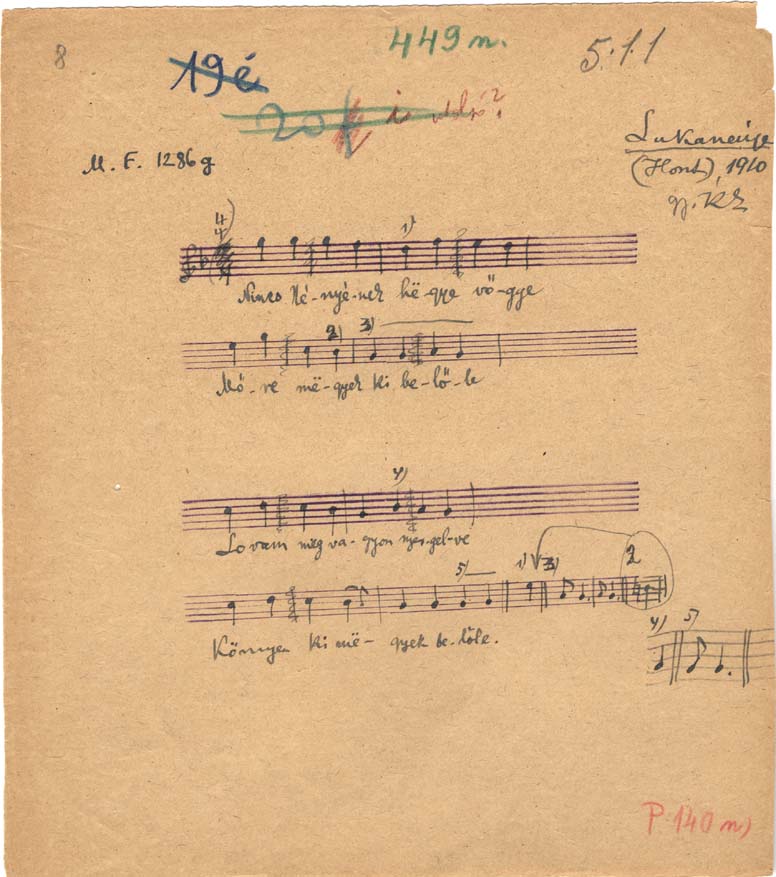 8
19é
449 n.
5.1.1
20
M. F. 1286 g
(Hont), 1910
gy. KZ
4
4
1)
Nincs Né-nyé-nek hë-gye vö-gye
2) 3)
Mó-re më-gyek ki be-lő-le
4)
Lovam meg va-gyon nyer-gel-ve
5) 1) 3) 2
Könnyen ki më-gyek be-lőle.
4) 5)
P. 140 n)